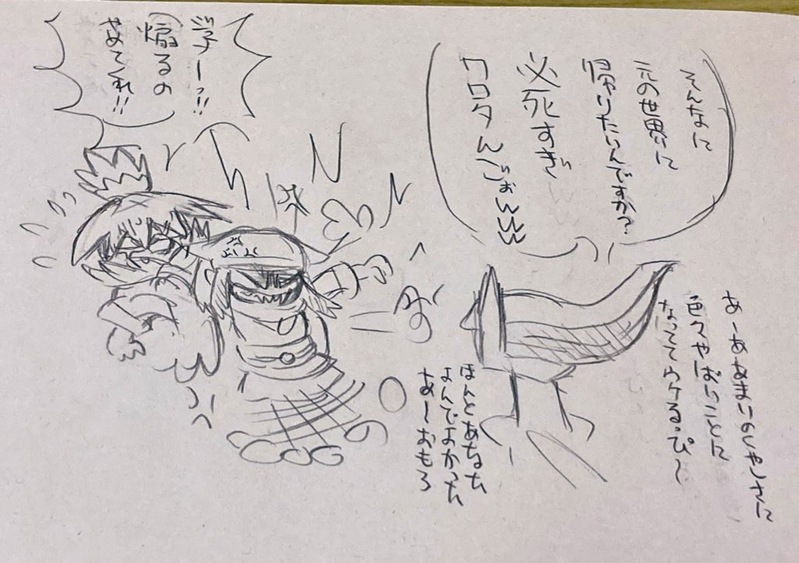 そんなに
元の世界に
帰りたいんですか?
必死すぎ
ワロタんごぉwww
あーああまりのくやしさに
色々やばいことに
なっててウケるっぴ〜
ほんとあなた
よんでよかった
あーおもろ
煽るの
やめてくれ!!